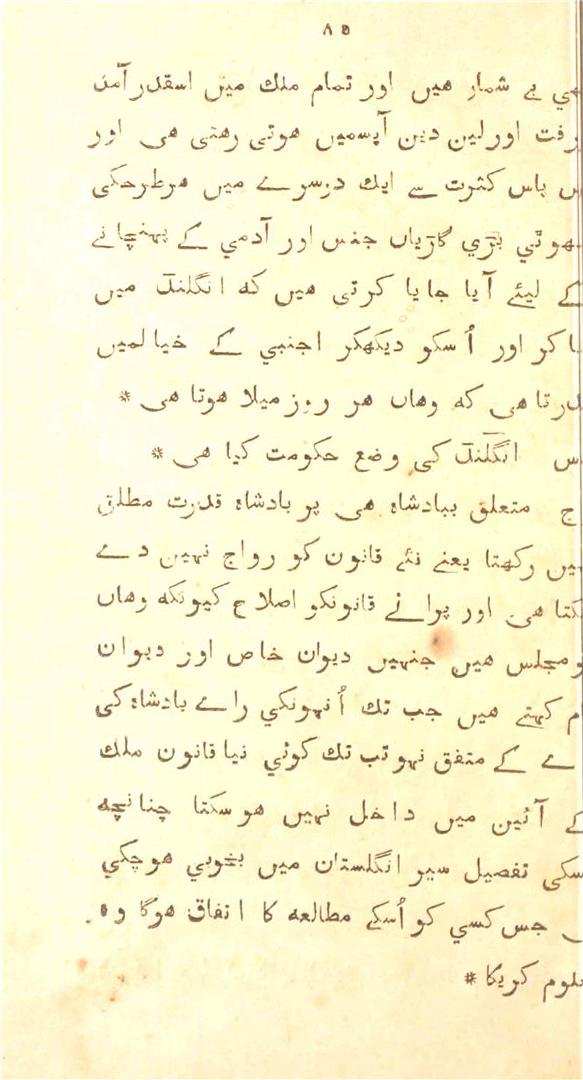 ۸۵
بے شمار هیں اور تمام ملك میں اسقدر آمد
رفت اور لین دین آپسمیں هوتی رهتی هی اور
پاس کثرت سے ایك دوسرے میں هر طرحکی
بڑي گاڑیاں جنس اور آدمي کے پہنچانے
کے لیئے آیا جایا کرتی هیں که انگلنڈ میں
کر اور اُسکو دیکھکر اجنبي کے خیالمیں
تا هی که وهاں هر روز میلا هوتا هی *
س انگلنڈ کی وضع حکومت کیا هی *
ج متعلق ببادشاہ هی پر بادشاہ قدرت مطلق
رکھتا یعنے نئے قانون کو رواج نہیں دے
هی اور پرانے قانونکو اصلاح کیونکه وهاں
مجلس هیں جنہیں دیوان خاص اور دیوان
کہتے هیں جب تك اُنہونکي راے بادشاہ کی
کے متفق نہو تب تك کوئي نیا قانون ملك
کے آئین میں داخل نہیں هو سکتا چنانچه
تفصیل سیر انگلستان میں بخوبي هو چکي
جس کسي کو اُسکے مطالعه کا اتفاق هوگا وہ
کریگا *